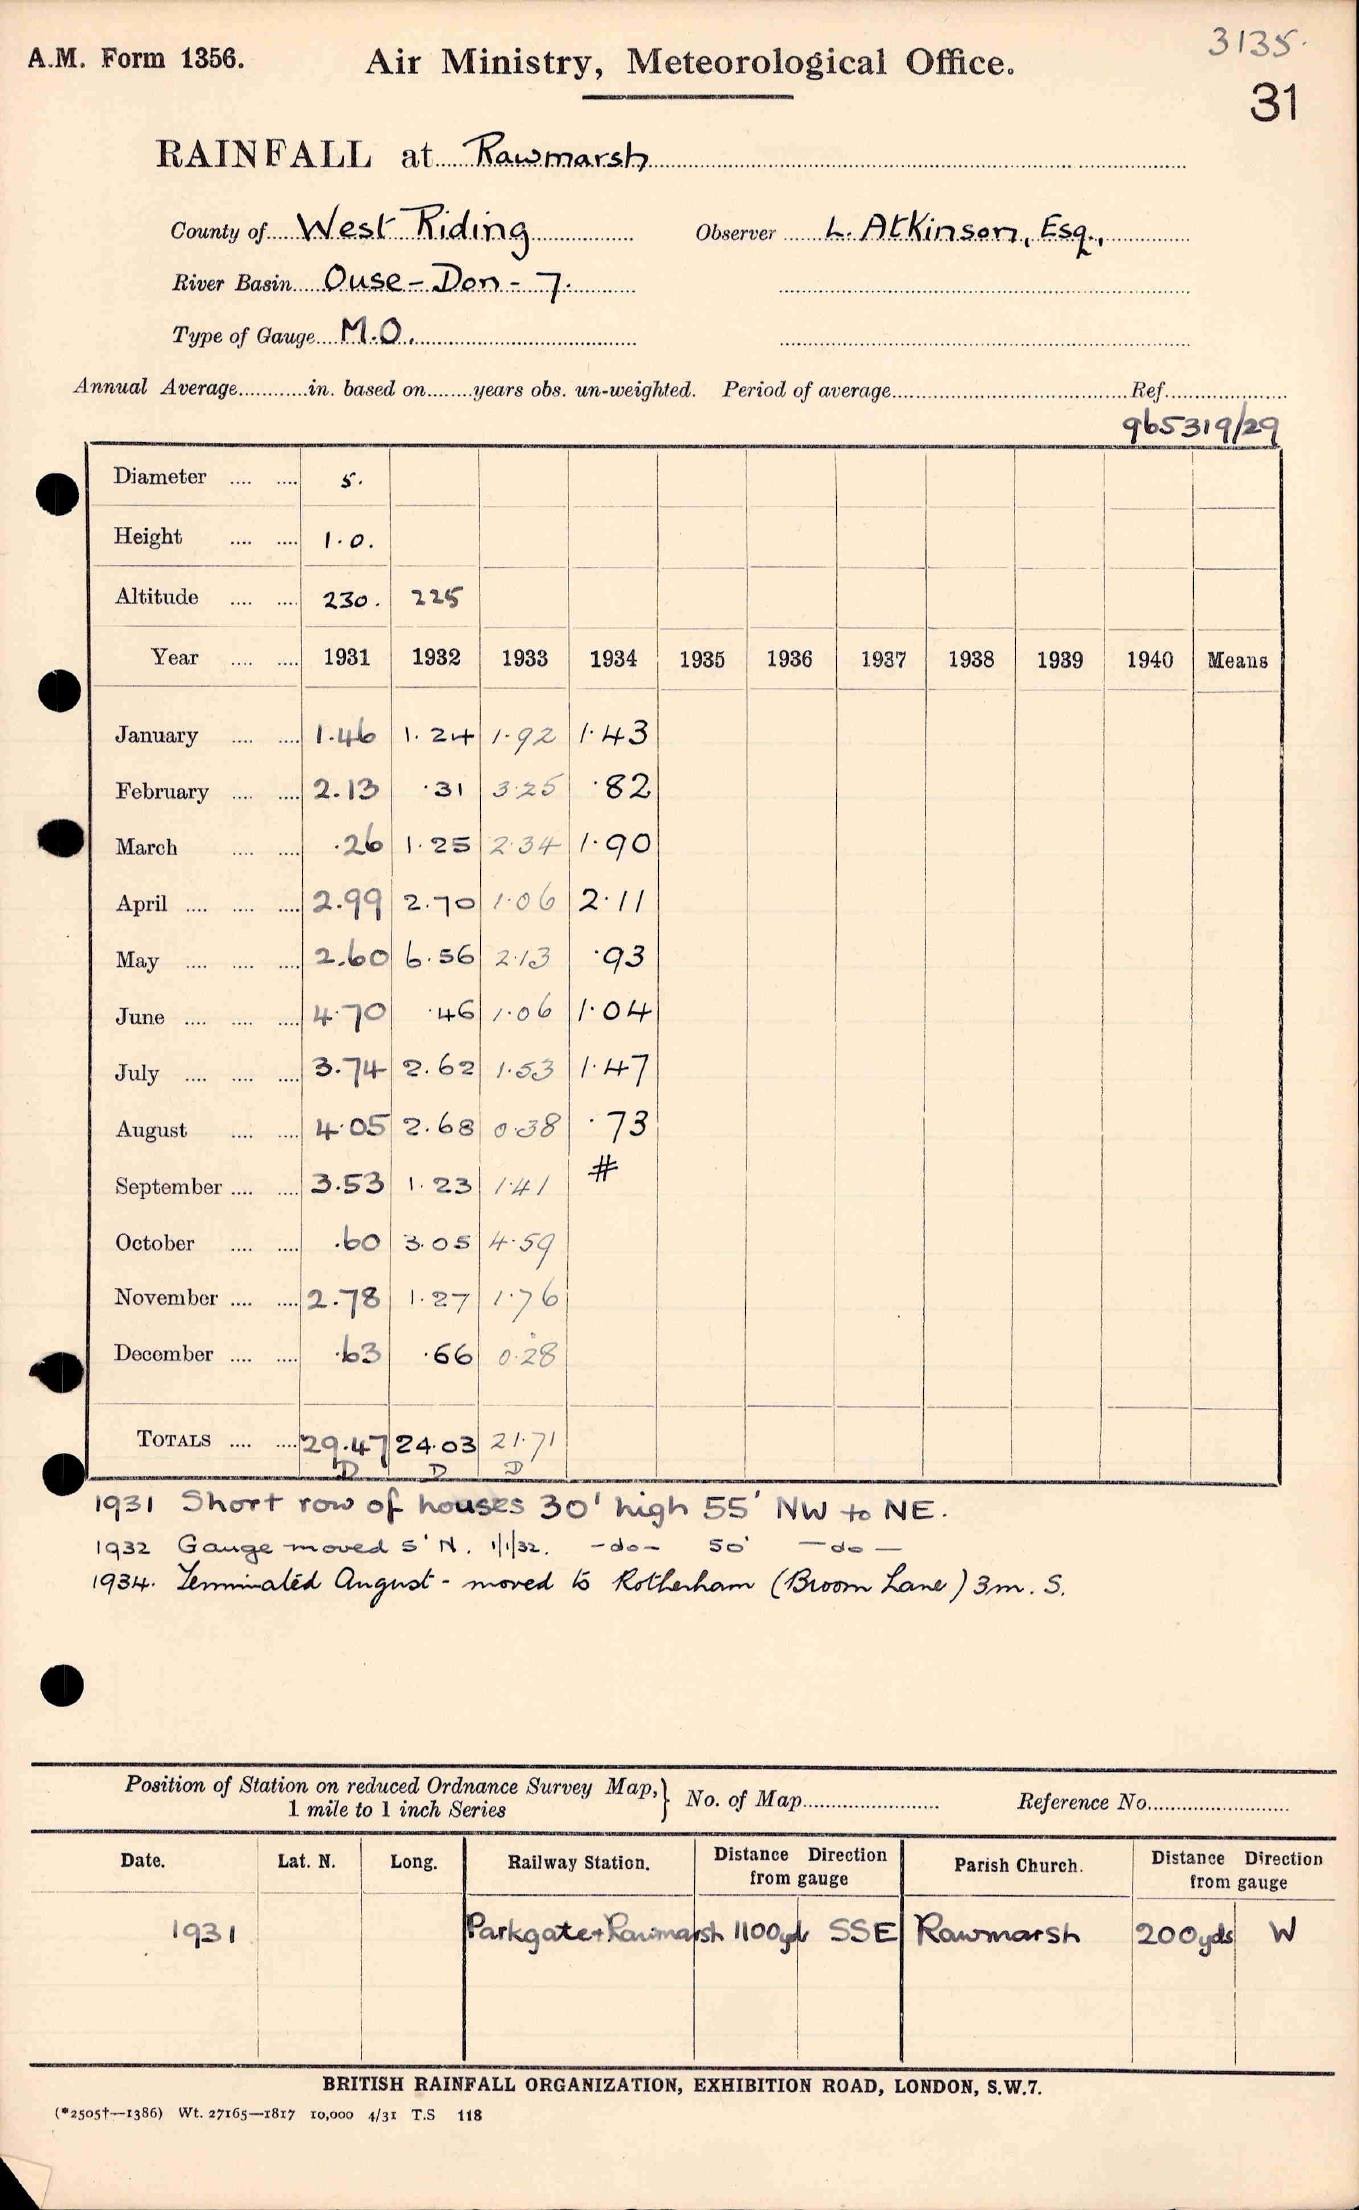 3135.
A.M. Form 1356. Air Ministry, Meteorological Office.
31
RAINFALL at Rawmarsh
County of West Riding Observer L. Atkinson, Esq.,
River Basin Ouse - Don - 7.
Type of Gauge M.O.
Annual Average in. based on years obs. un-weighted. Period of average Ref.
965319/29
Diameter 5.
Height 1.0.
Altitude 230. 225
Year 1931 1932 1933 1934 1935 1936 1937 1938 1939 1940 Means
January 1.46 1.24 1.92 1.43
February 2.13 .31 3.25 .82
March .26 1.25 2.34 1.90
April 2.99 2.70 1.06 2.11
May 2.60 6.56 2.13 .93
June 4.70 .46 1.06 1.04
July 3.74 2.62 1.53 1.47
August 4.05 2.68 0.38 .73
September 3.53 1.23 1.41 #
October .60 3.05 4.59
November 2.78 1.27 1.76
December .63 .66 0.28
TOTALS 29.47 24.03 21.71
D D D
1931 Short row of houses 30' high 55' NW to NE.
1932 Gauge moved 5' N. 1/1/32. -do- 50' -do-
1934. Terminated August - moved to Rotherham (Broom Lane) 3m. S.
Position of Station on reduced Ordnance Survey Map, } No. of Map Reference No.
1 mile to 1 inch Series
Date. Lat. N. Long. Railway Station. Distance Direction from gauge Parish Church. Distance Direction from gauge
1931 Parkgate + Rawmarsh 1100yds SSE Rawmarsh 200yds W
BRITISH RAINFALL ORGANIZATION, EXHIBITION ROAD, LONDON, S.W.7.
(*2505†—1386) Wt. 27165—1817 10,000 4/31 T.S 118